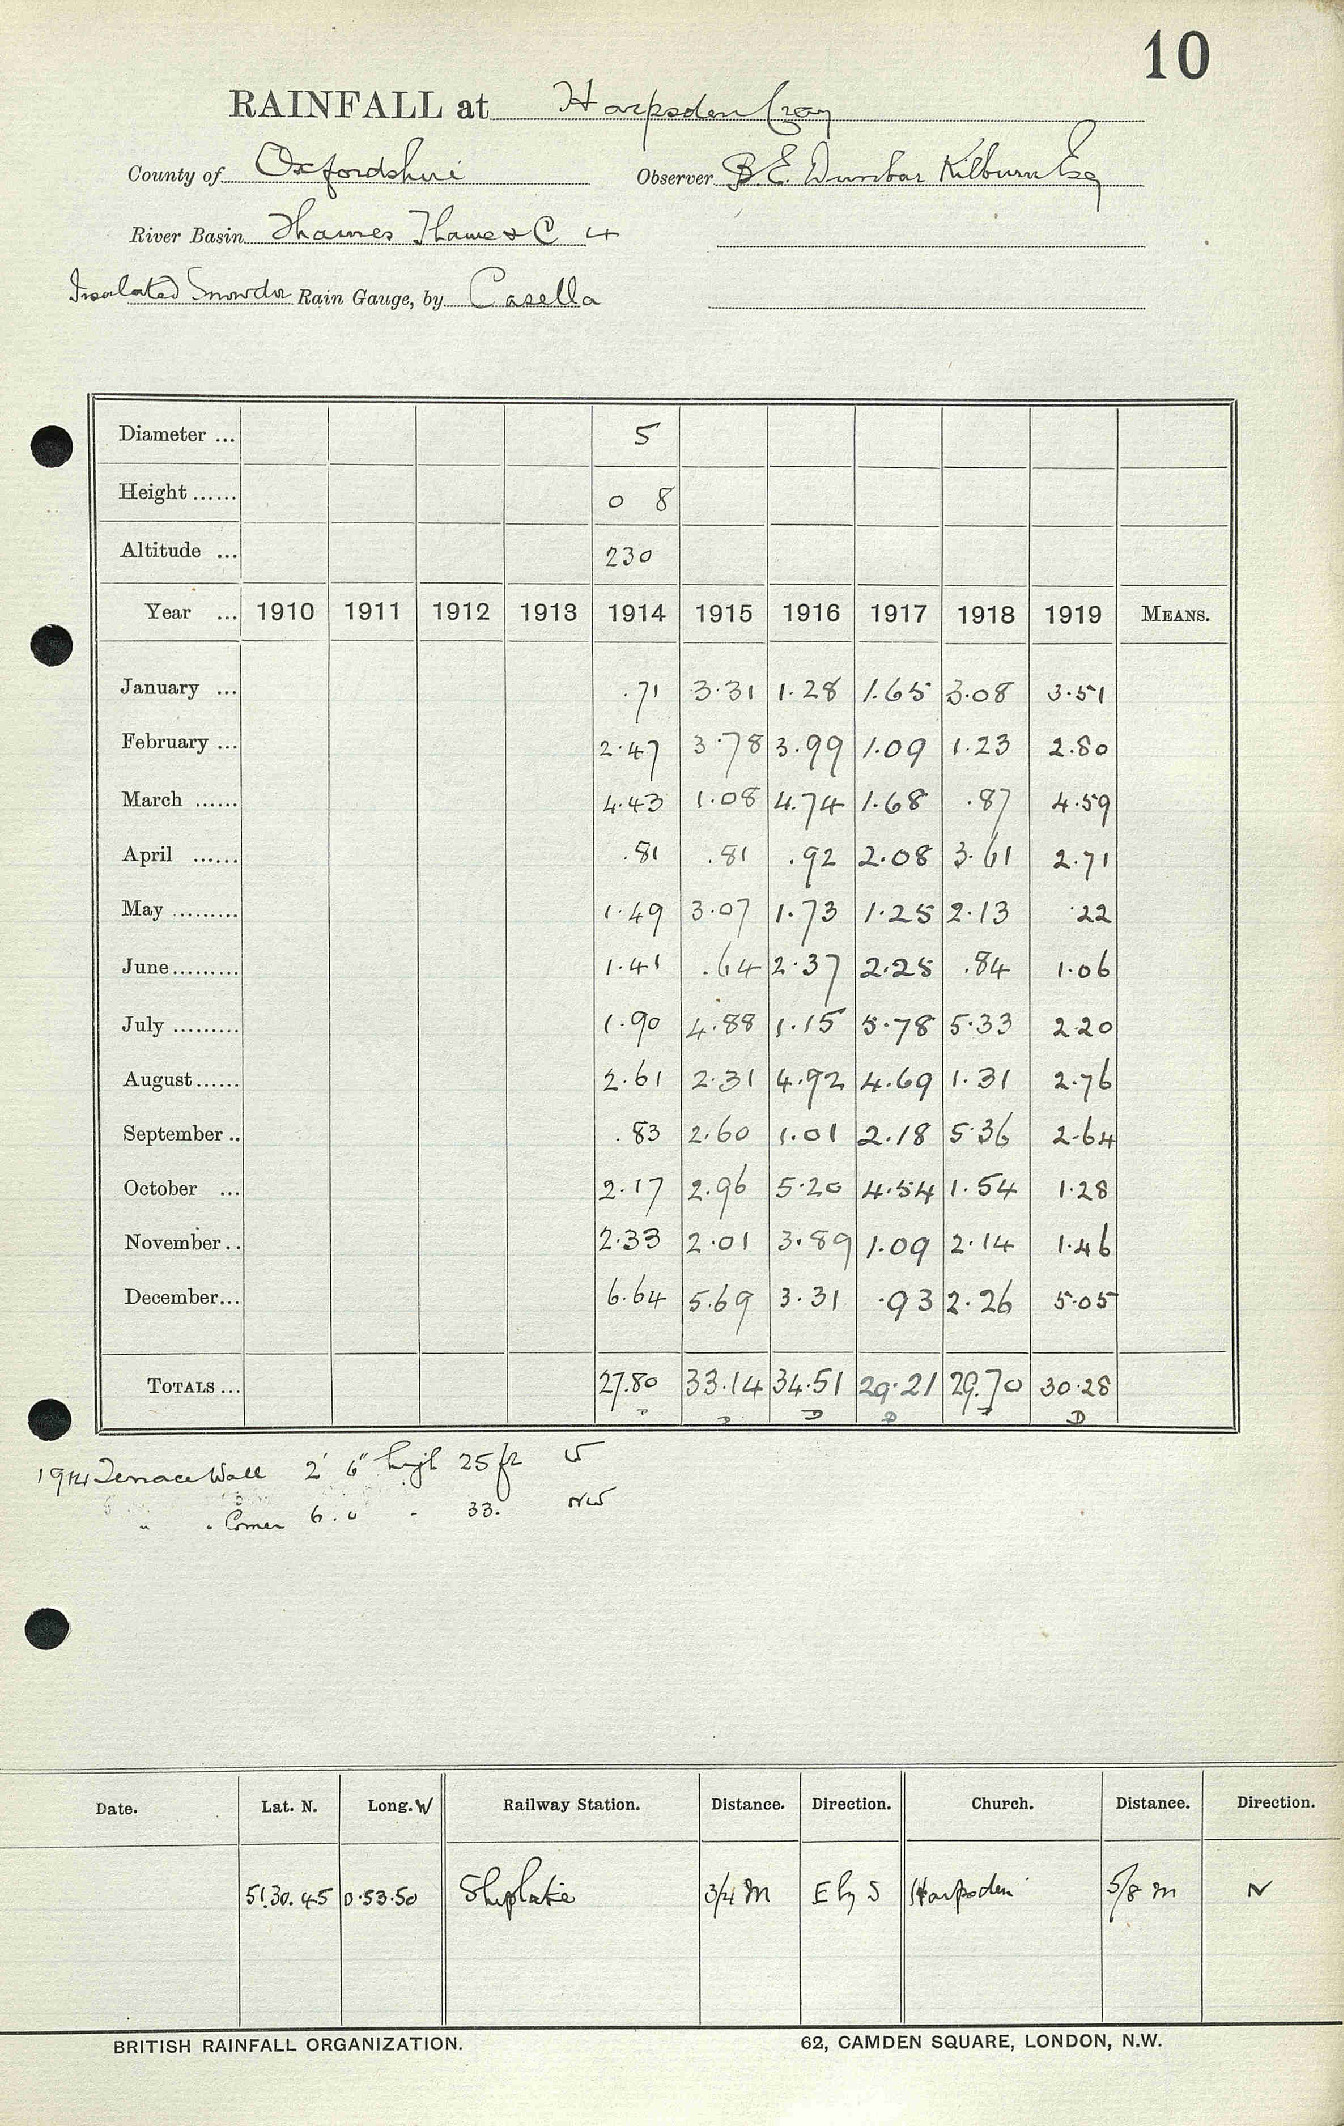 10
RAINFALL at Harpsden Cray
County of Oxfordshire Observer B.E. Dunbar Kilburn Esq
River Basin Thames Thame & C 4
Insulated Snowdon Rain Gauge, by Casella
Diameter ... 5
Height ...... 0 8
Altitude ... 230
Year ... 1910 1911 1912 1913 1914 1915 1916 1917 1918 1919 MEANS.
January ... .71 3.31 1.28 1.65 3.08 3.51
February ... 2.47 3.78 3.99 1.09 1.23 2.80
March ...... 4.43 1.08 4.74 1.68 .87 4.59
April ...... .81 .81 .92 2.08 3.61 2.71
May ......... 1.49 3.07 1.73 1.25 2.13 .22
June......... 1.41 .64 2.37 2.25 .84 1.06
July ......... 1.90 4.88 1.15 5.78 5.33 2.20
August...... 2.61 2.31 4.92 4.69 1.31 2.76
September .. .83 2.60 1.01 2.18 5.36 2.64
October ... 2.17 2.96 5.20 4.54 1.54 1.28
November .. 2.33 2.01 3.89 1.09 2.14 1.46
December... 6.64 5.69 3.31 .93 2.26 5.05
TOTALS ... 27.80 33.14 34.51 29.21 29.70 30.28
D D D D D D
1914 Terrace Wall 2' 6" high 25 ft W
" " Corner 6.0 " 33. NW
Date. Lat. N. Long. W Railway Station. Distance. Direction. Church. Distance. Direction.
51.30.45 0.53.50 Shiplake 3/4 m E by S Harpsden 5/8 m N
BRITISH RAINFALL ORGANIZATION. 62, CAMDEN SQUARE, LONDON, N.W.